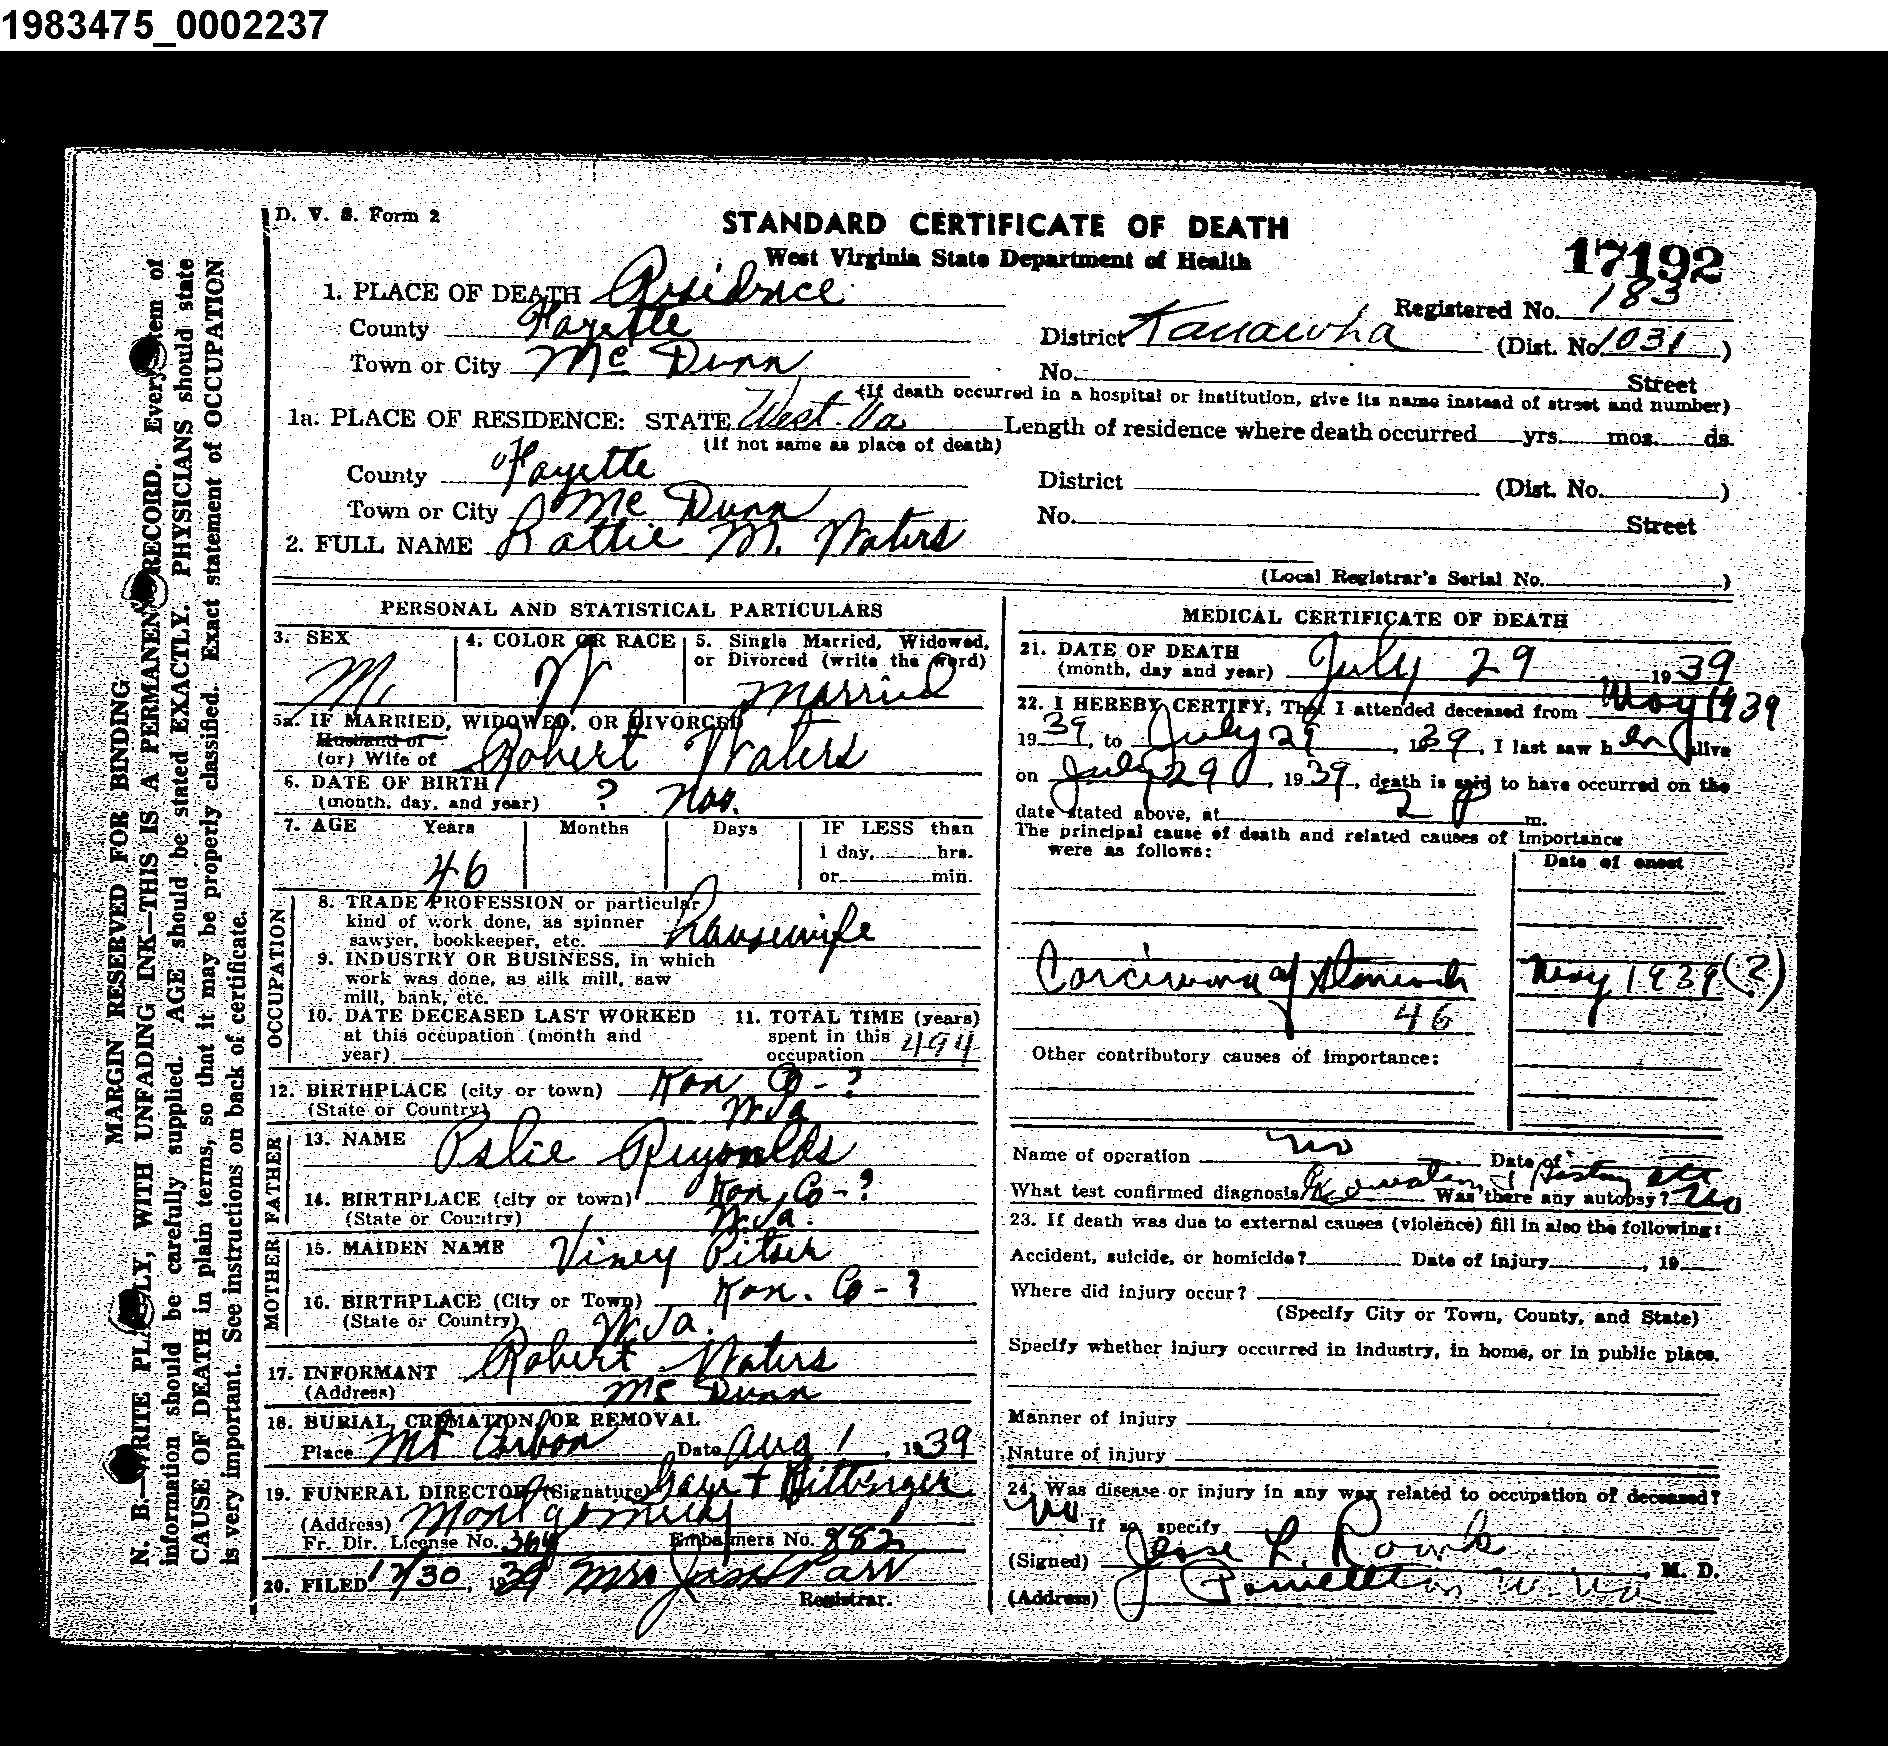 1983475_0002237
D. V. S. Form 2
STANDARD CERTIFICATE OF DEATH
West Virginia State Department of Health
17192
1. PLACE OF DEATH Residence
Registered No. 183
County Fayette
District Kanawha (Dist. No. 1031)
Town or City Mc Dunn
No. Street
(If death occurred in a hospital or institution, give its name instead of street and number)
1a. PLACE OF RESIDENCE: STATE West. Va
Length of residence where death occurred yrs. mos. ds.
(If not same as place of death)
County Fayette
District (Dist. No. )
Town or City Mc Dunn
No. Street
2. FULL NAME Rattie M. Waters
(Local Registrar's Serial No. )
PERSONAL AND STATISTICAL PARTICULARS
3. SEX M.
4. COLOR OR RACE W
5. Single Married, Widowed, or Divorced (write the word) married
5a. IF MARRIED, WIDOWED, OR DIVORCED
Husband of
(or) Wife of Robert Waters
6. DATE OF BIRTH
(month, day, and year) ? Nov.
7. AGE Years Months Days IF LESS than
1 day, hrs.
or min.
46
OCCUPATION
8. TRADE PROFESSION or particular
kind of work done, as spinner
sawyer, bookkeeper, etc. housewife
9. INDUSTRY OR BUSINESS, in which
work was done, as silk mill, saw
mill, bank, etc.
10. DATE DECEASED LAST WORKED
at this occupation (month and
year)
11. TOTAL TIME (years)
spent in this
occupation 494
12. BIRTHPLACE (city or town) Kan Co - ?
(State or Country) W. Va
FATHER
13. NAME Reynolds
14. BIRTHPLACE (city or town) Kan. Co - ?
(State or Country) W. Va.
MOTHER
15. MAIDEN NAME Viney Pitser
16. BIRTHPLACE (City or Town) Kan. Co - ?
(State or Country) W. Va.
17. INFORMANT Robert Waters
(Address) Mc Dunn
18. BURIAL, CREMATION, OR REMOVAL
Place Mt Carbon Date Aug 1, 1939
19. FUNERAL DIRECTOR (Signature) + Bittinger
(Address) Montgomery
Fr. Dir. License No. 364 Embalmers No. 882
20. FILED 30, 1939 Mrs Jas Parr
Registrar.
MEDICAL CERTIFICATE OF DEATH
21. DATE OF DEATH
(month, day and year) July 29 1939
22. I HEREBY CERTIFY, That I attended deceased from May 1939
1939, to July 29, 1939, I last saw her alive
on July 29, 1939, death is said to have occurred on the
date stated above, at 2 P m.
The principal cause of death and related causes of importance
were as follows:
Date of onset
Carcinoma of Stomach May 1939 (?)
46
Other contributory causes of importance:
Name of operation no Date of
What test confirmed diagnosis History Was there any autopsy? No
23. If death was due to external causes (violence) fill in also the following:
Accident, suicide, or homicide? Date of injury , 19
Where did injury occur?
(Specify City or Town, County, and State)
Specify whether injury occurred in industry, in home, or in public place.
Manner of injury
Nature of injury
24. Was disease or injury in any way related to occupation of deceased?
No If so specify
(Signed) Jesse L. , M. D.
(Address) Powellton W. Va
MARGIN RESERVED FOR BINDING
N. B.—WRITE PLAINLY, WITH UNFADING INK—THIS IS A PERMANENT RECORD. Every item of
information should be carefully supplied. AGE should be stated EXACTLY. PHYSICIANS should state
CAUSE OF DEATH in plain terms, so that it may be properly classified. Exact statement of OCCUPATION
is very important. See instructions on back of certificate.